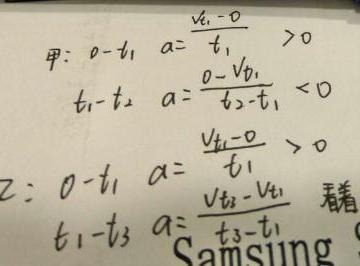 甲: 0-t₁ a=(v_t₁-0)/t₁ >0
t₁-t₂ a=(0-v_0₁)/(t₂-t₁) <0
乙: 0-t₁ a=(v_t₁-0)/t₁ >0
t₁-t₃ a=(v_t₃-v_t₁)/(t₃-t₁) 看着
Samsung